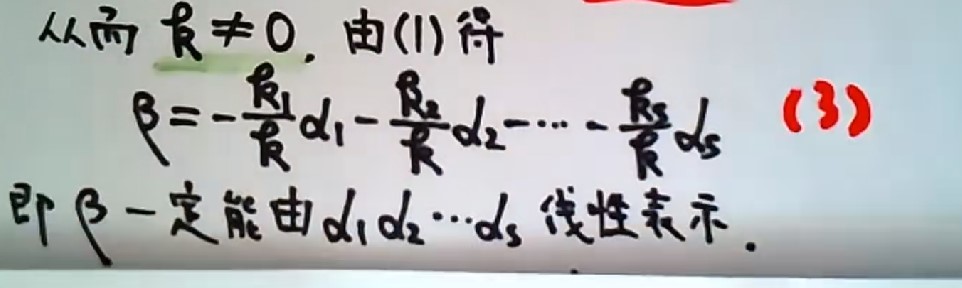 从而 k ≠ 0. 由(1)得
β = -\frac{k_1}{k}α_1 - \frac{k_2}{k}α_2 - ⋯ - \frac{k_s}{k}α_s (3)
即 β 一定能由 α_1 α_2 ⋯ α_s 线性表示.